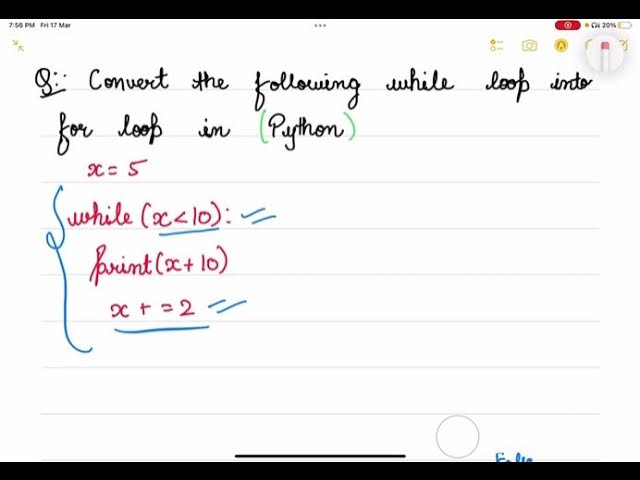 7:56 PM Fri 17 Mar
20%
Q:: Convert the following while loop into
for loop in (Python)
x = 5
while (x < 10):
print(x + 10)
x + = 2